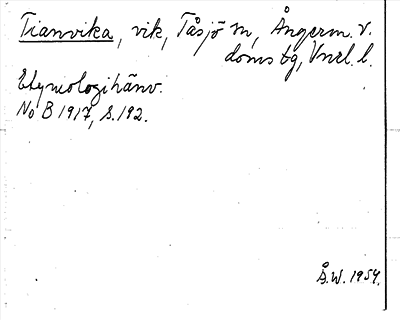 Tianvika, vik, Tåsjö sn, Ångerm. v.
doms bg, Vnrl. l.
Etymologihänv.
No B 1917, S. 192.
Å.W. 1954.